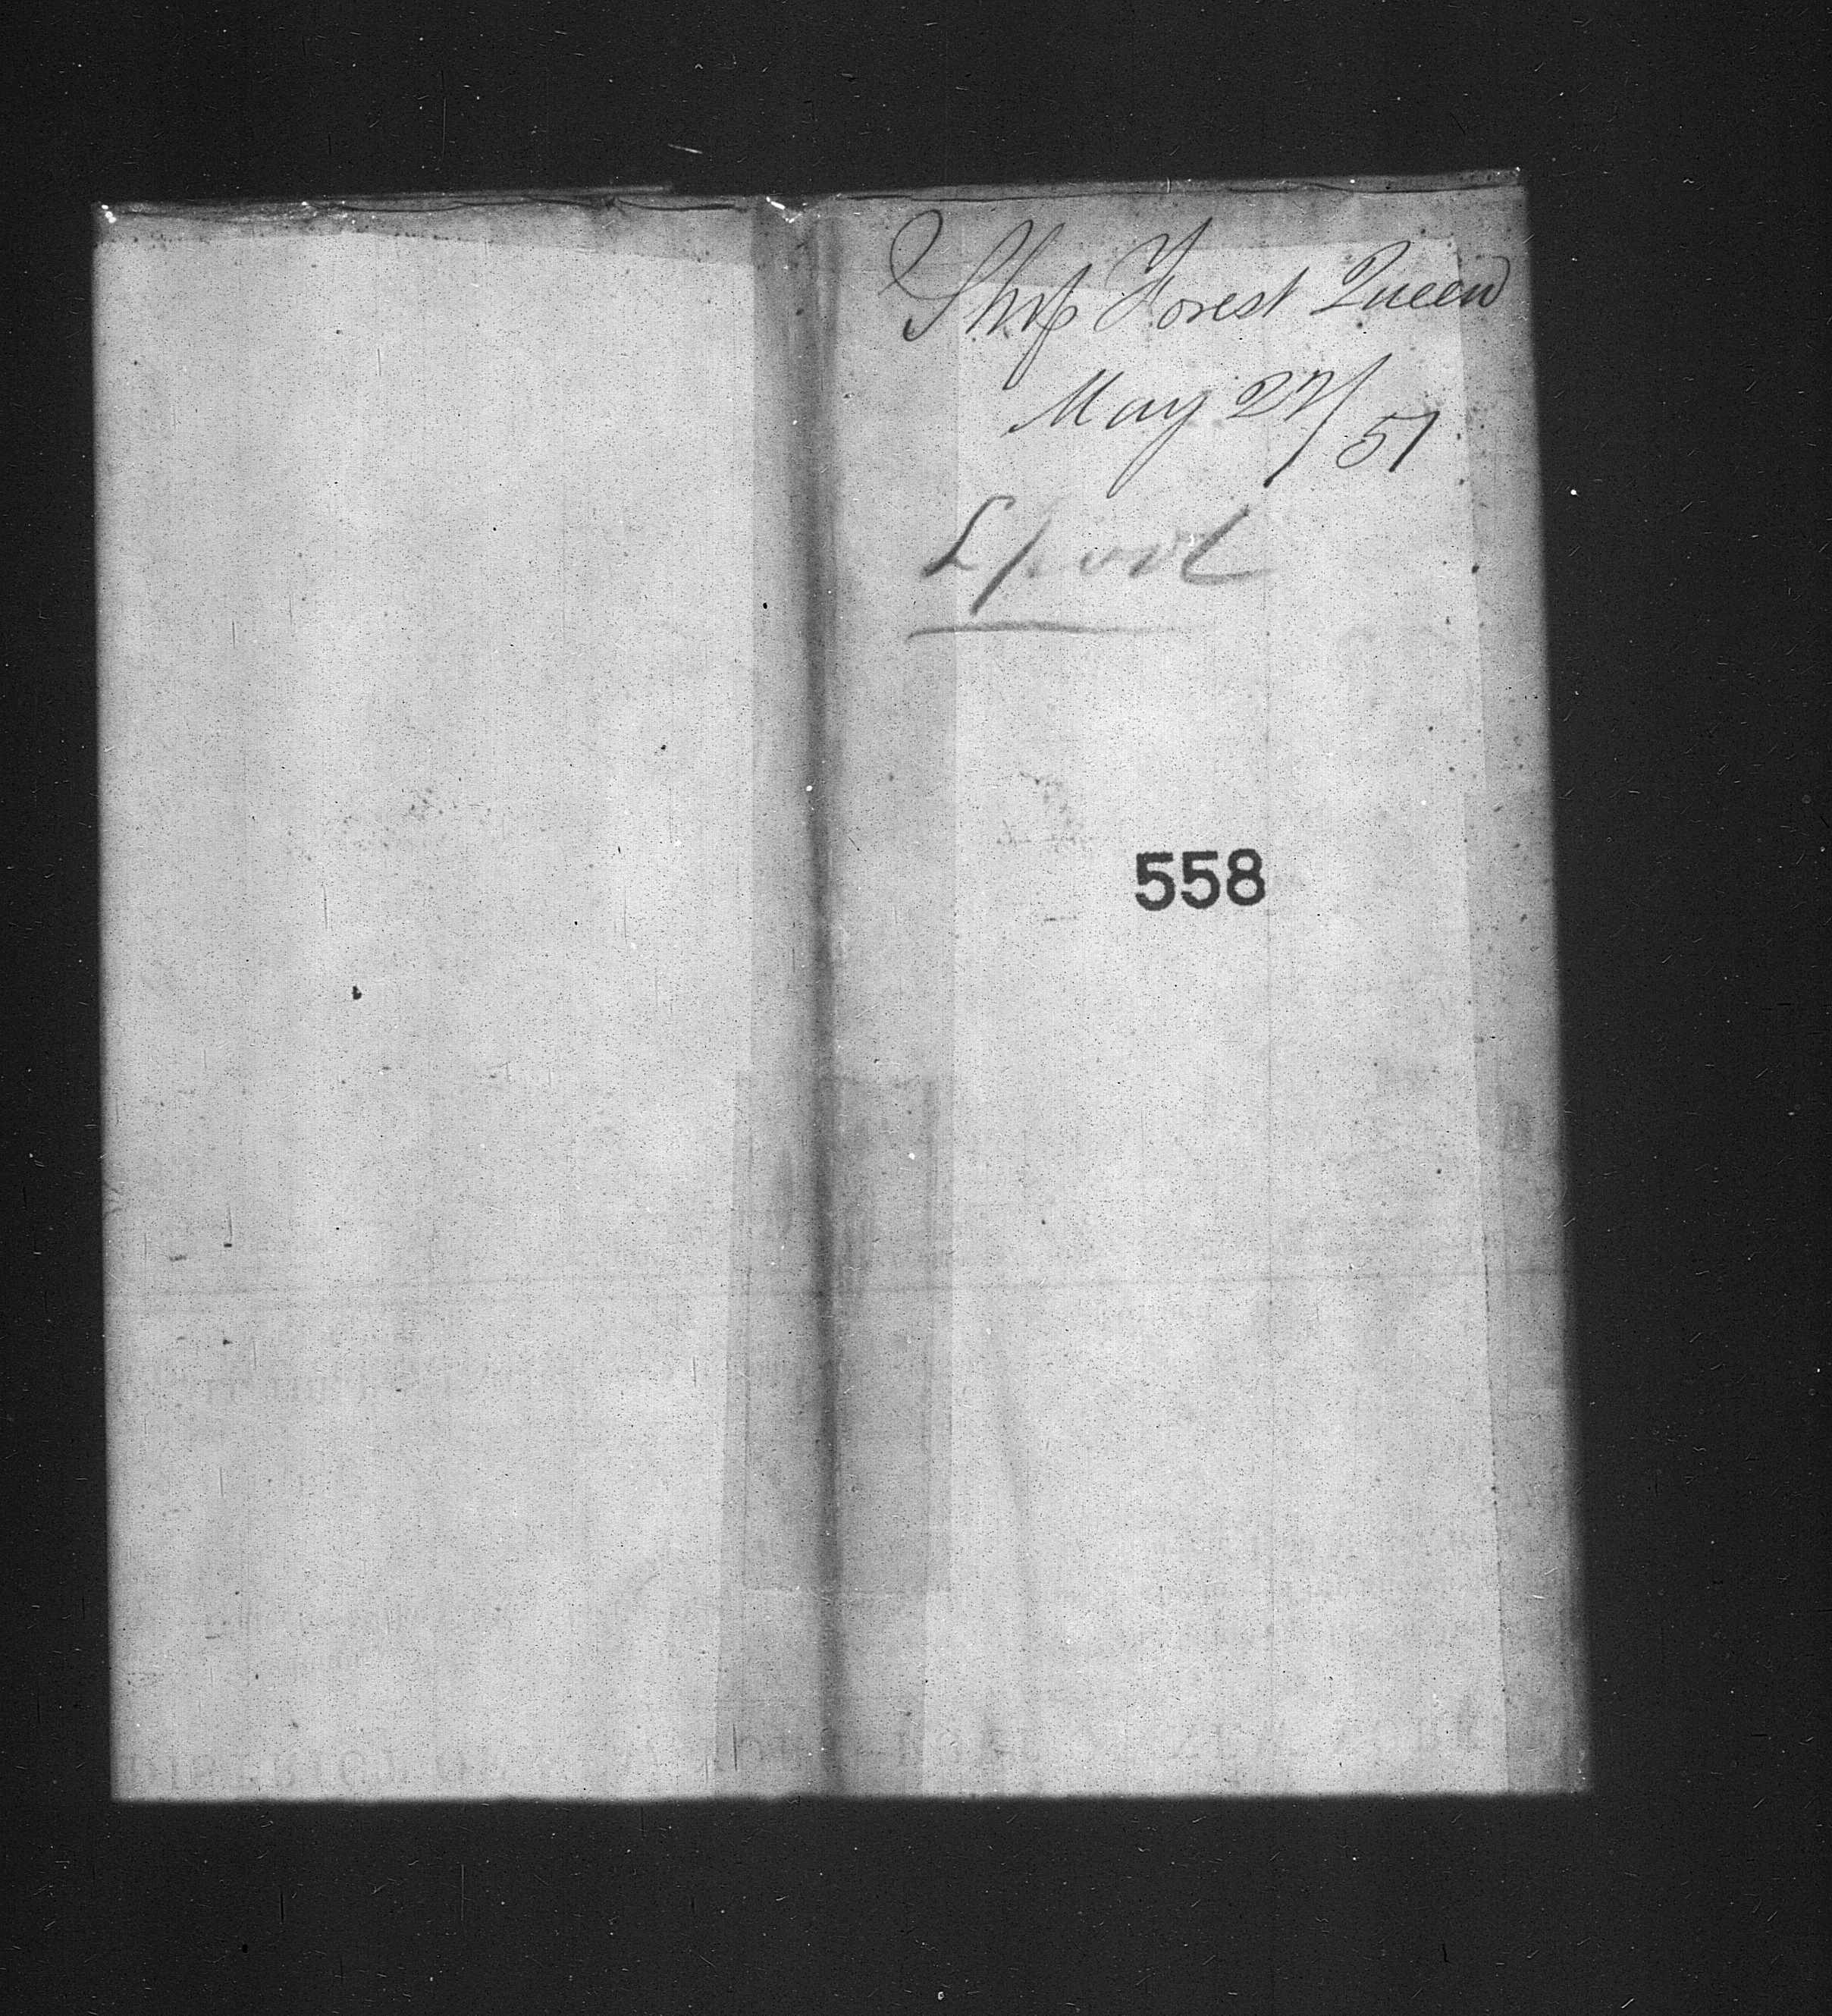 Ship Forest Queen
May 27/51
Lpool
558